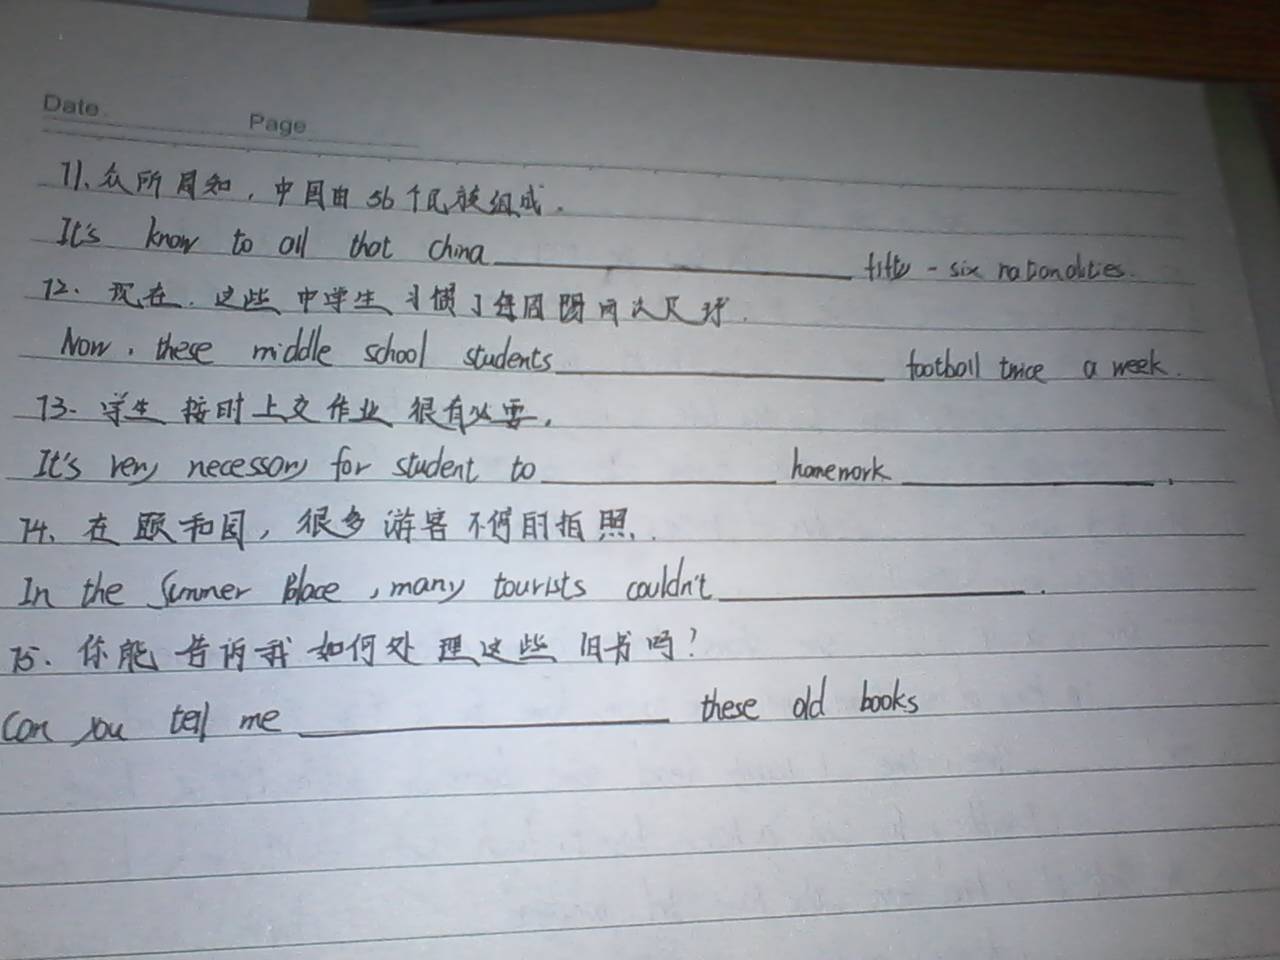 Date.
Page
71、众所周知，中国由56个民族组成．
It's know to all that china ________ fifty-six nationalities.
72．现在．这些中学生习惯了每周踢两次足球．
Now, these middle school students ________ football twice a week.
73．学生按时上交作业很有必要．
It's very necessary for student to ________ homework ________.
74、在颐和园，很多游客不停的拍照．
In the Summer Place, many tourists couldn't ________.
75．你能告诉我如何处理这些旧书吗？
Can you tell me ________ these old books